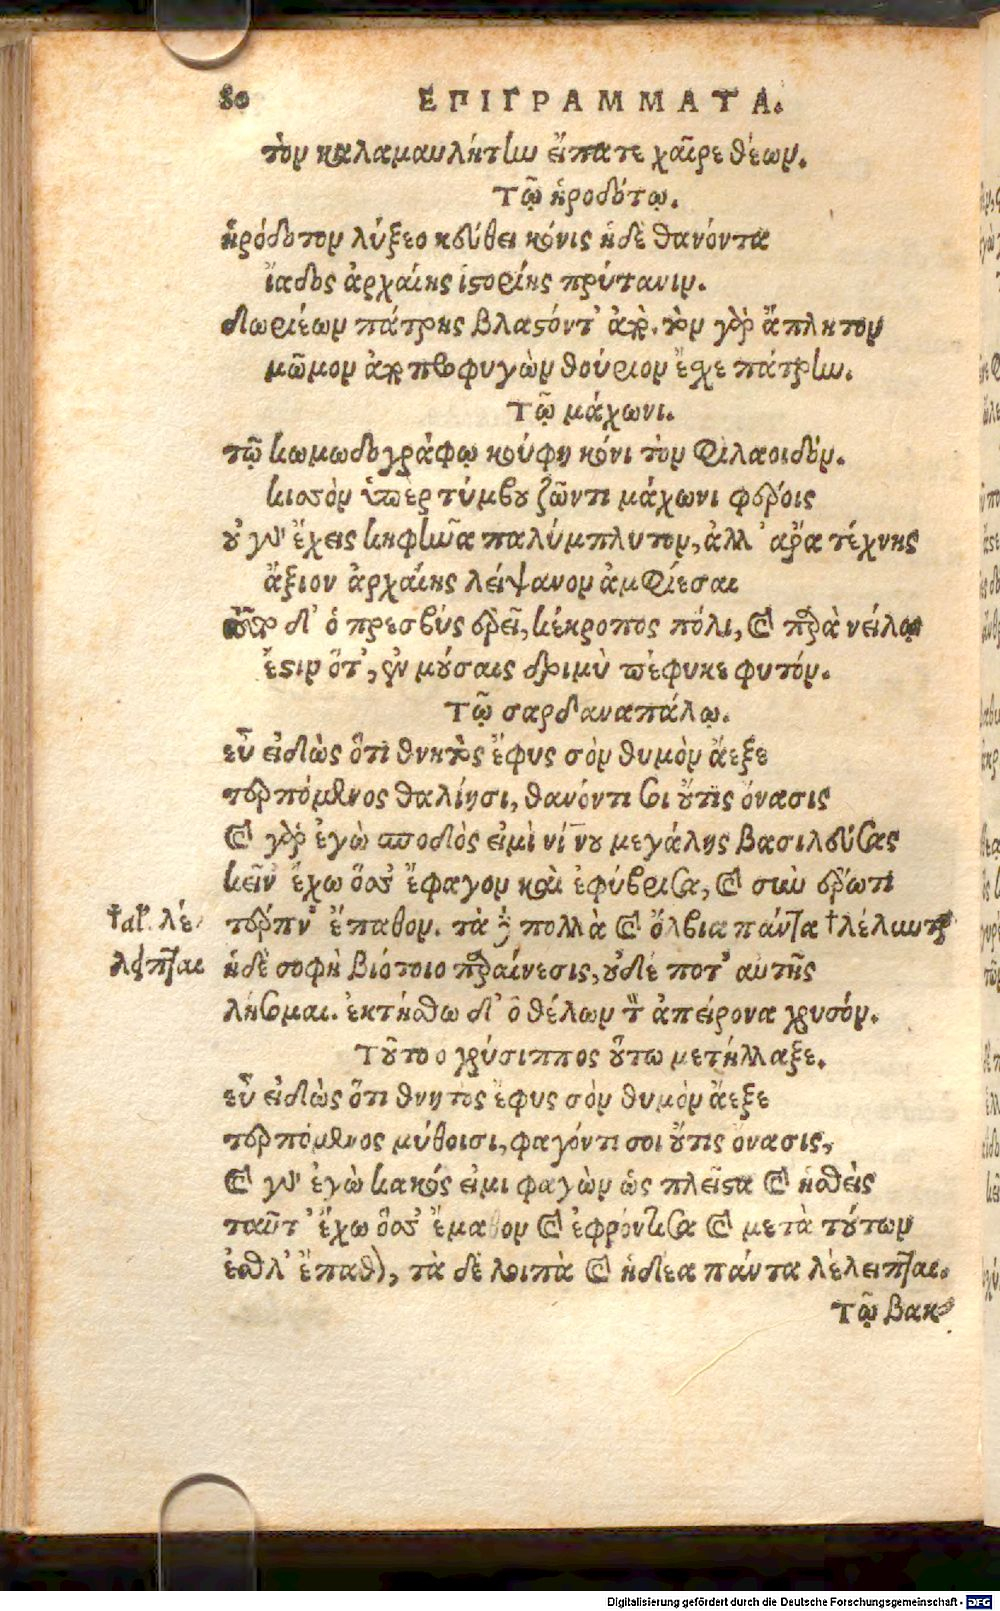 80 ΕΠΙΓΡΑΜΜΑΤΑ.
τὸν καλαμαυλήτην εἴπατε χαῖρε θέων.
Τῷ ἡροδότῳ.
ἡρόδοτον λύξεο κεύθει κόνις ἡδὲ θανόντα
ἴαδος ἀρχαίης ἱστορίης πρύτανιν.
δωριέων πάτρης βλαστόντ' ἄπο. τὸν γὰρ ἄπλητον
μῶμον ὑπεκπροφυγὼν θούριον ἔσχε πάτρην.
Τῷ μάχωνι.
τῷ κωμωδογράφῳ κούφη κόνι τὸν φιλαοιδὸν.
κισσὸν ὑπὲρ τύμβου ζῶντι μάχωνι φέροις
οὐ γὰρ ἔχεις κηφῆνα παλύμπλυτον, ἀλλ' ἄρα τέχνης
ἄξιον ἀρχαίης λείψανον ἀμφίεσαι
δ' ὁ πρεσβύς ἐρεῖ, κέκροπος πόλι, καὶ παρὰ νείλῳ
ἔστιν ὅτ', ἐν μούσαις δριμὺ πέφυκε φυτόν.
Τῷ σαρδαναπάλῳ.
εὖ εἰδὼς ὅτι θνητὸς ἔφυς σὸν θυμὸν ἄεξε
τερπόμενος θαλίησι, θανόντι σοι οὔτις ὄνασις
καὶ γὰρ ἐγὼ σποδὸς εἰμὶ νίνου μεγάλης βασιλεύσας
κεῖν' ἔχω ὅσσ' ἔφαγον καὶ ἐφύβρισα, καὶ σὺν ἔρωτι
†αλ. λέ- τέρπν' ἔπαθον. τὰ δὲ πολλὰ καὶ ὄλβια πάντα †λέλυνται
λειπται ἡδὲ σοφὴ βιότοιο παραίνεσις, οὐδέ ποτ' αὐτῆς
λήσομαι. ἐκτήσθω δ' ὁ θέλων τὸν ἀπείρονα χρυσόν.
Τοῦτο ο χρύσιππος οὕτω μετήλλαξε.
εὖ εἰδὼς ὅτι θνητος ἔφυς σὸν θυμὸν ἄεξε
τερπόμενος μύθοισι, φαγόντι σοι οὔτις ὄνασις,
καὶ γὰρ ἐγὼ κακός εἰμι φαγὼν ὡς πλεῖστα καὶ ἡσθεὶς
ταῦτ' ἔχω ὅσσ' ἔμαθον καὶ ἐφρόντισα καὶ μετὰ τούτων
ἐσθλ' ἔπαθον, τὰ δὲ λοιπὰ καὶ ἡδέα πάντα λέλειπται.
Τῷ βακ
Digitalisierung gefördert durch die Deutsche Forschungsgemeinschaft - DFG